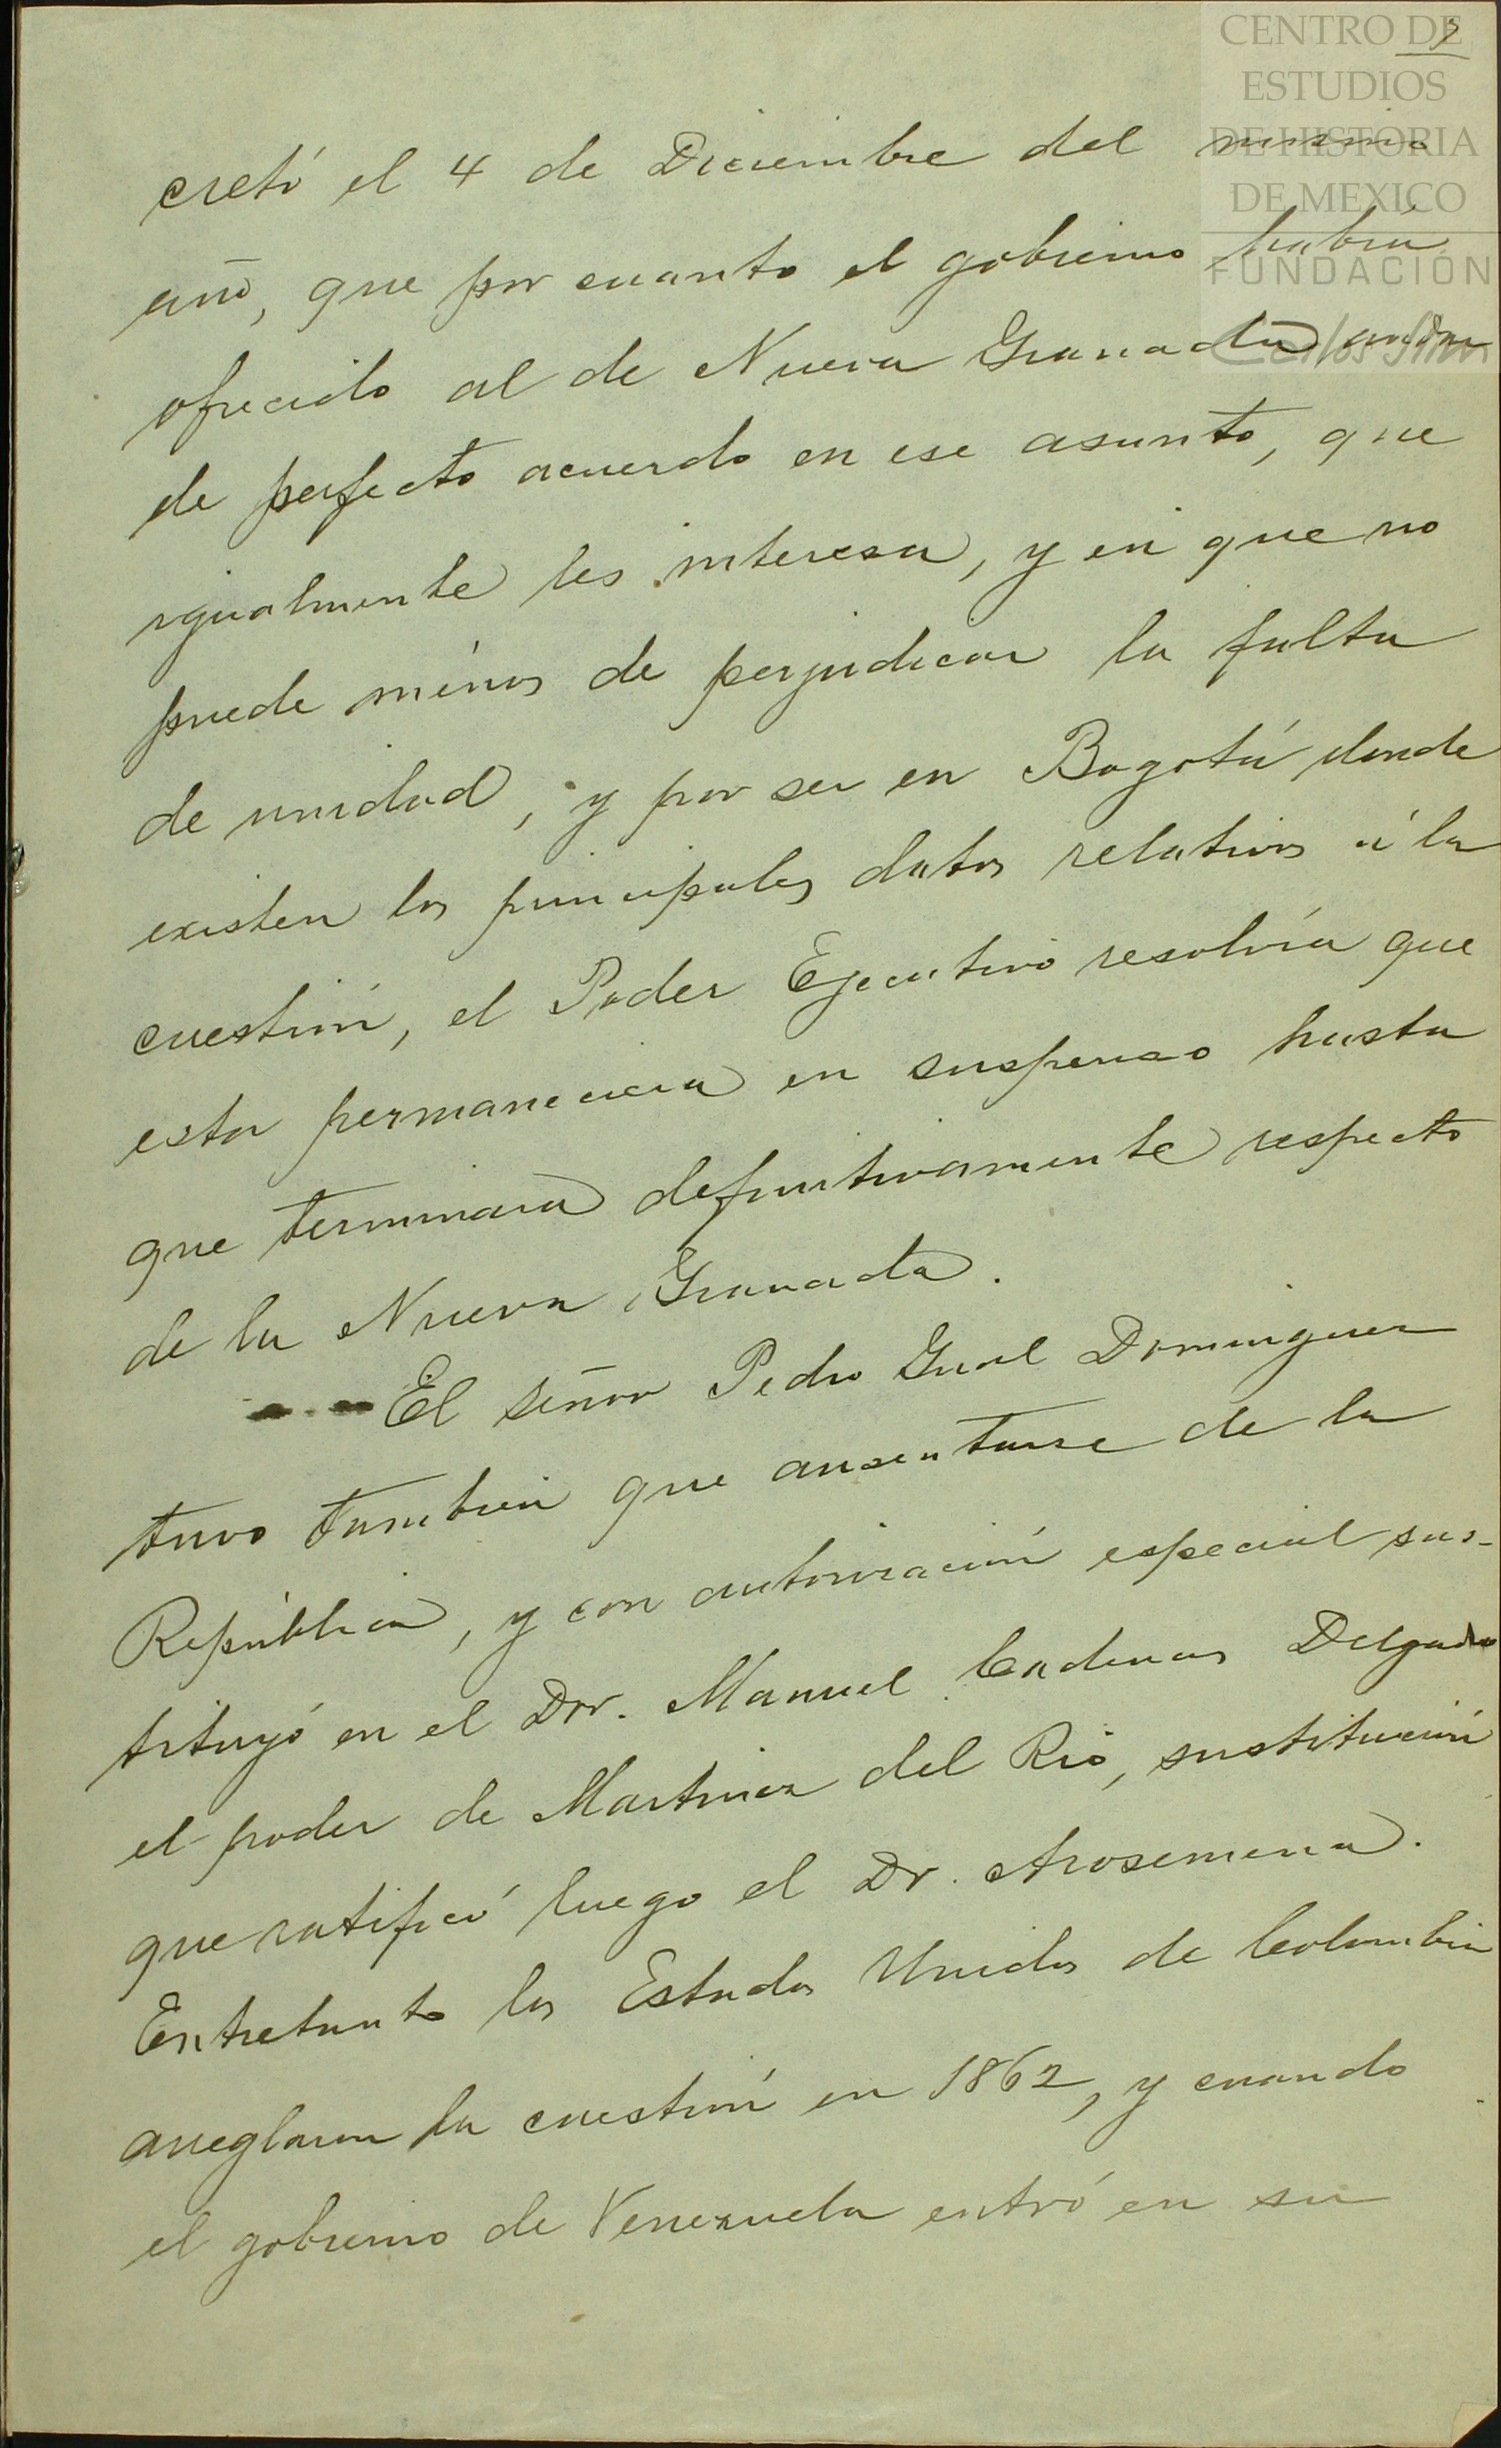 CENTRO DE
ESTUDIOS
DE HISTORIA
DE MEXICO
FUNDACIÓN
Carlos Slim
cretó el 4 de Diciembre del mismo
año, que por cuanto el gobierno había
ofrecido al de Nueva Granada andar
de perfecto acuerdo en ese asunto, que
igualmente les interesa, y en que no
puede ménos de perjudicar la falta
de unidad, y por ser en Bogotá donde
existen los principales datos relativos á la
cuestión, el Poder Ejecutivo resolvía que
esta permaneciera en suspenso hasta
que terminara definitivamente respecto
de la Nueva Granada.
El señor Pedro Gual Dominguez
tuvo tambien que ausentarse de la
República, y con autorización especial sus-
tituyó en el Dor. Manuel Cadenas Delgado
el poder de Martinez del Rio, sustitución
que ratificó luego el Dr. Arosemena.
Entretanto los Estados Unidos de Colombia
arreglaron la cuestión en 1862, y cuando
el gobierno de Venezuela entró en su